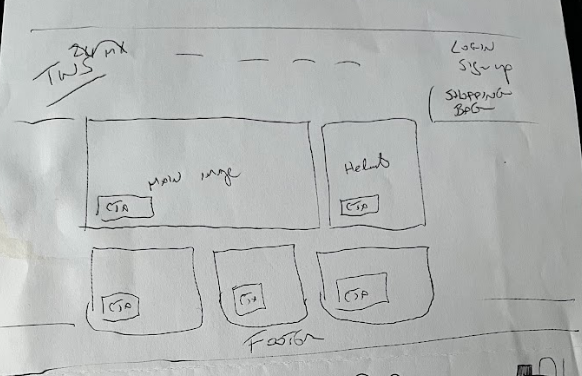 TWS
LOGIN
Sign up
SHOPPING
BAG
MAIN image
CTA
Helmets
CTA
CTA
CTA
CTA
FOOTER